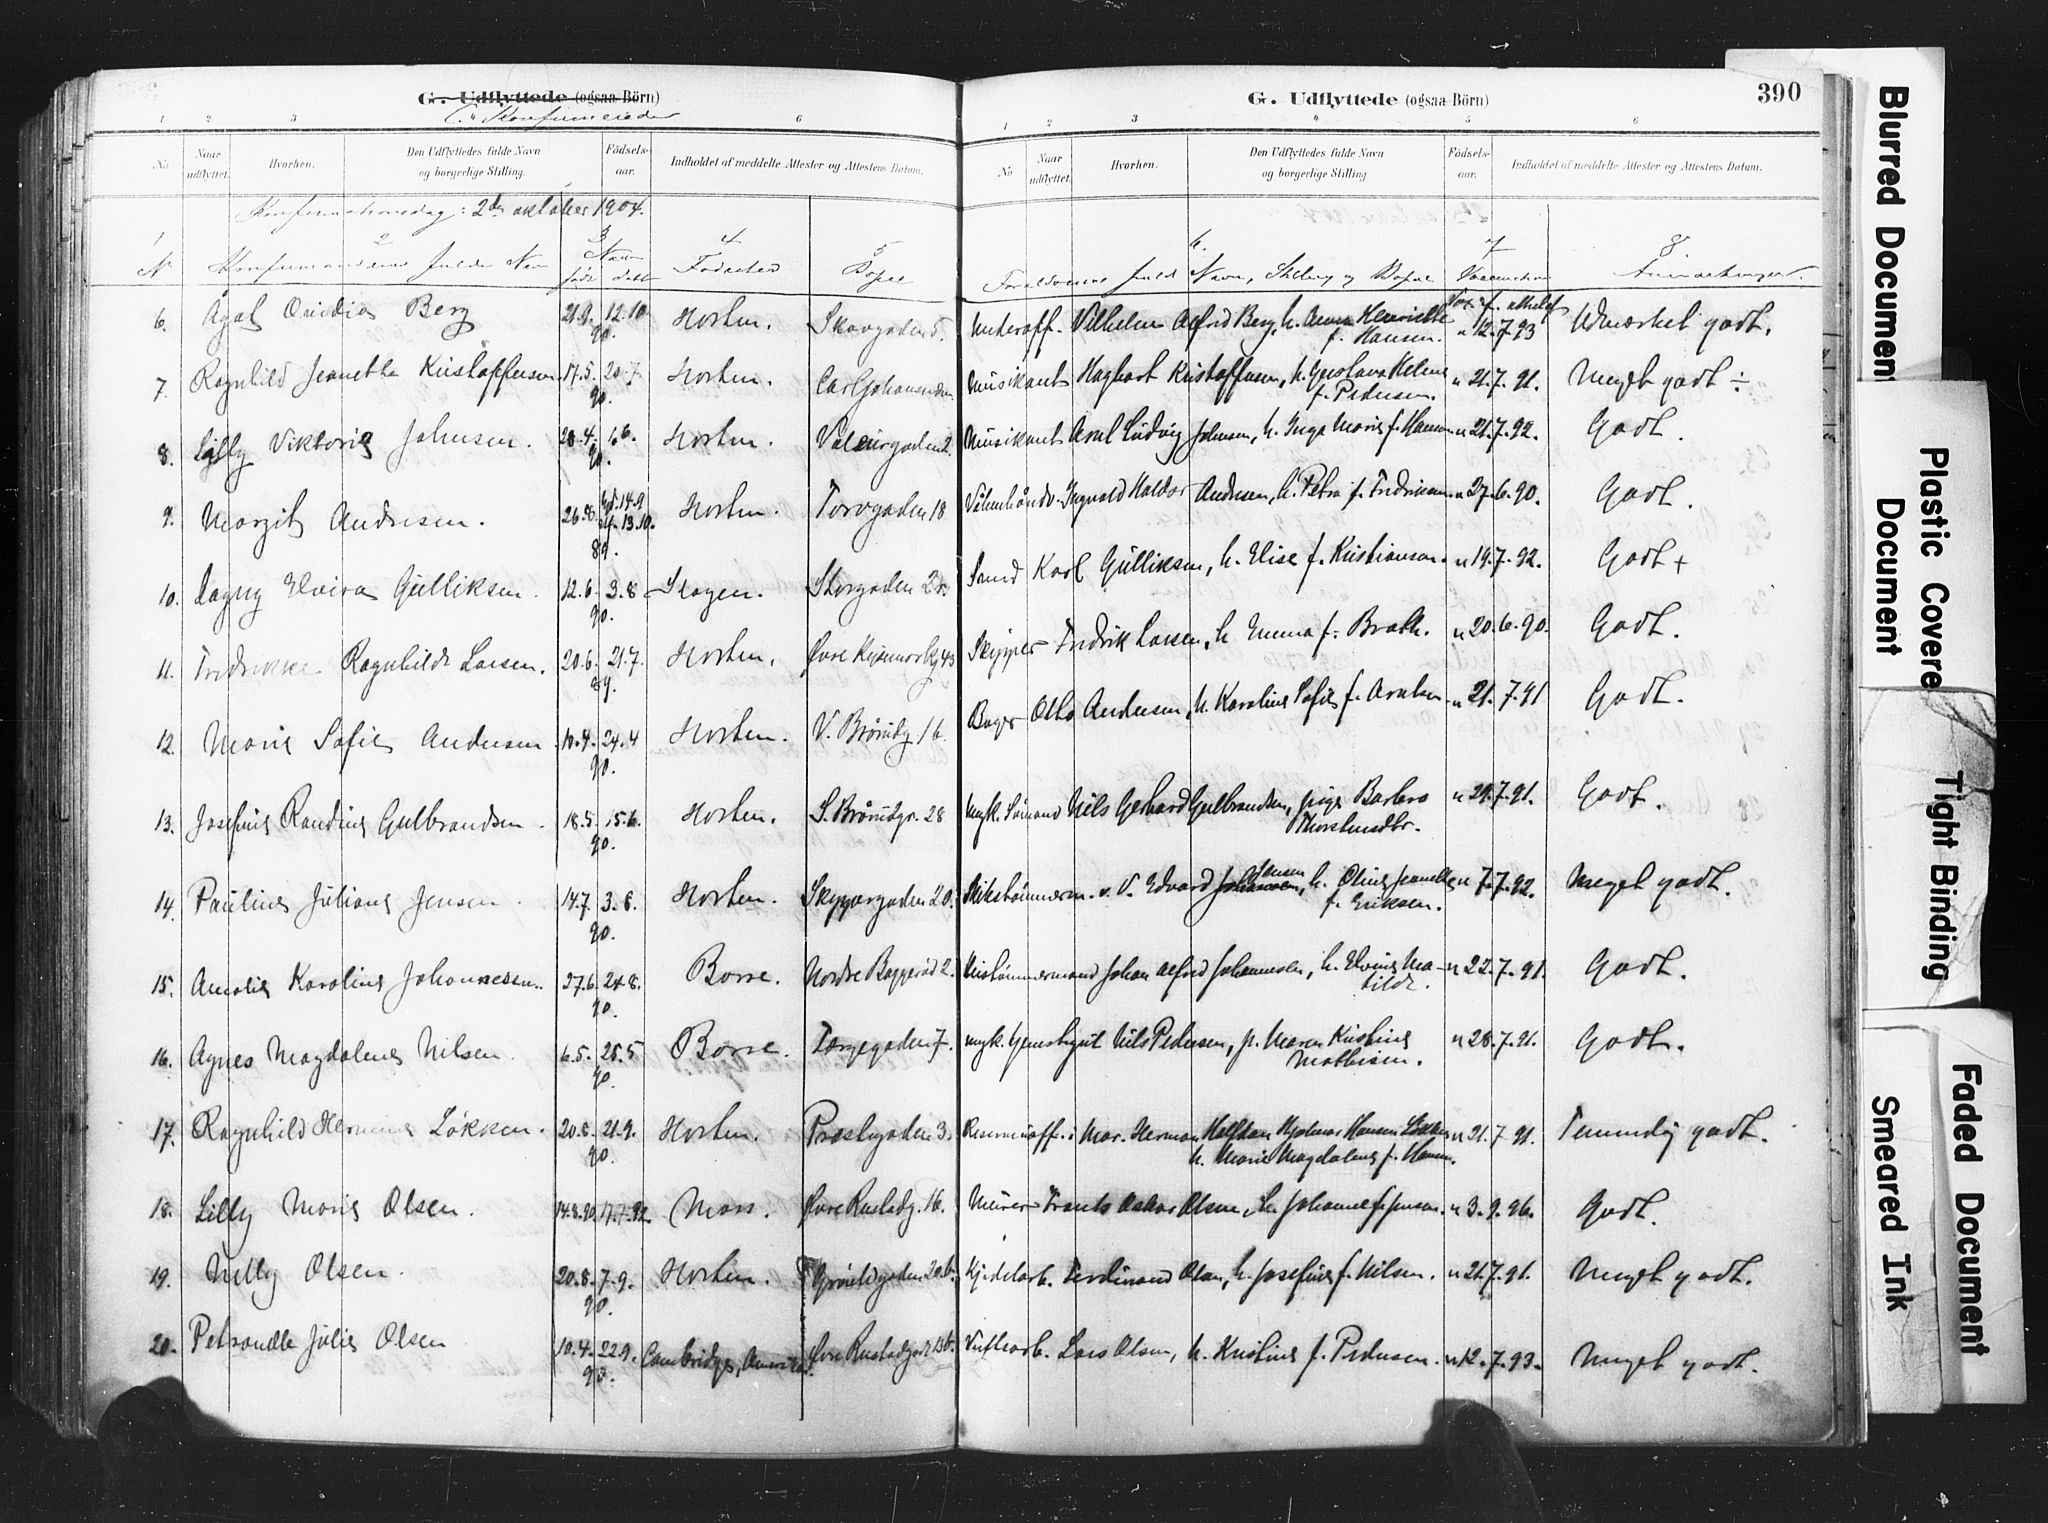 G. Udflyttede (ogsaa Börn)
C. Konfirmerede
1 2 3 6
No Naar udflyttet. Hvorhen. Den Udflyttedes fulde Navn og borgerlige Stilling. Födsels-aar. Indholdet af meddelte Attester og Attestens Datum.
Konfirmationsdag: 2den oktober 1904.
1 2 3 4 5
N Konfirmandens fulde Navn Naar født døbt Fødested Bopæl
6. Berg 21.9. 12.10. 90. Horten. Skovgaden 5.
7. Ragnhild Jeanette Kristoffersen 17.5. 20.7. 90. Horten. Carl Johansveien
8. Lilly Viktoria Johnsen. 28.4. 6.6. 90. Horten. 2.
9. Margit Andresen. 26.8. 14.9. 13.10. 89. Horten. Torvgaden 18
10. Dagny Elvira Gulliksen. 12.6. 3.8 90. Skogen. Storgaden
11. Fredrikke Ragnhild Larsen. 20.6. 21.7. 89. Horten. Øvre 43
12. Marie Sofie Andersen 10.4. 24.4 90. Horten. V. Brårudg 16.
13. Josefine Randine Gulbrandsen. 18.5. 15.6. 90. Horten. S. Brårudgr. 28
14. Pauline Juliane Jensen. 14.7. 3.8. 90. Horten. Skippergaden 20.
15. Amalie Karoline Johannessen. 27.6. 24.8. 90. Borre. Nordre Baggerød 2.
16. Agnes Magdalene Nilsen. 6.5. 25.5 90. Borre. Torvgaden 7.
17. Ragnhild Hermine Løkken. 20.8. 21.9. 90. Horten. Præstegaden 3.
18. Lilly Marie Olsen. 14.8.90. 17.7.92. Moss. Øvre Rustadg. 16.
19. Nelly Olsen. 20.8. 7.9. 90. Horten. 20b.
20. Petronelle Julie Olsen 10.4. 22.9. 90. Cambridge, Amerika. Øvre Rustadgade 13b.
G. Udflyttede (ogsaa Börn) 390
1 2 3 4 5 6
No Naar udflyttet. Hvorhen. Den Udflyttedes fulde Navn og borgerlige Stilling. Födsels-aar. Indholdet af meddelte Attester og Attestens Datum.
6. 7 8
Forældrenes fulde Navn, Stilling og Bopæl Vaccination Anmærkninger.
Underoff. Vilhelm Alfred Berg, h. Anna Henriette f. Hansen. Vac. f. attest " 12.7.93 Udmærket godt.
Musikant Hagbart Kristoffersen, h. Gustava Helene f. Pedersen. " 21.7.91. Meget godt ÷
Musikant Axel Ludvig Johnsen, h. Inga Marie f. Hansen " 21.7.92. Godt.
Ingvald Haldor Andresen, h. Petra f. Fredriksen " 27.6.90. Godt.
Karl Gulliksen, h. Elise f. Kristiansen. " 19.7.92. Godt +
Skipper Fredrik Larsen, h. Emma f. Brath. " 20.6.90. Godt.
Bager Otto Andersen, h. Karoline Sofie f. " 21.7.91 Godt.
ugk. Sømand Nils Gerhard Gulbrandsen, pige Barbro Thorstensdtr. " 29.7.91. Godt.
Edvard Jensen, h. Oline Jeanette f. Eriksen. " 7.7.92. Meget godt.
Johan Alfred Johannessen, h. Elvine Matilde. " 22.7.91. Godt.
ugk. Nils Pedersen, p. Maren Kristine Mathisen. " 28.7.91. Godt.
Reserveoff. i Mar. Herman Halfdan Hjalmar Hansen Løkken h. Marie Magdalene f. Hansen. " 21.7.91. Temmelig godt.
Murer Frants Oskar Olsen, h. Johanne f. Jensen. " 3.9.96. Godt.
Kjedelarb. Ferdinand Olsen, h. Josefine f. Nilsen. " 21.7.91. Meget godt.
Lars Olsen, h. Kristine f. Pedersen. " 12.7.93. Meget godt.
Blurred Document
Plastic Covere
Document
Tight Binding
Faded Document
Smeared Ink